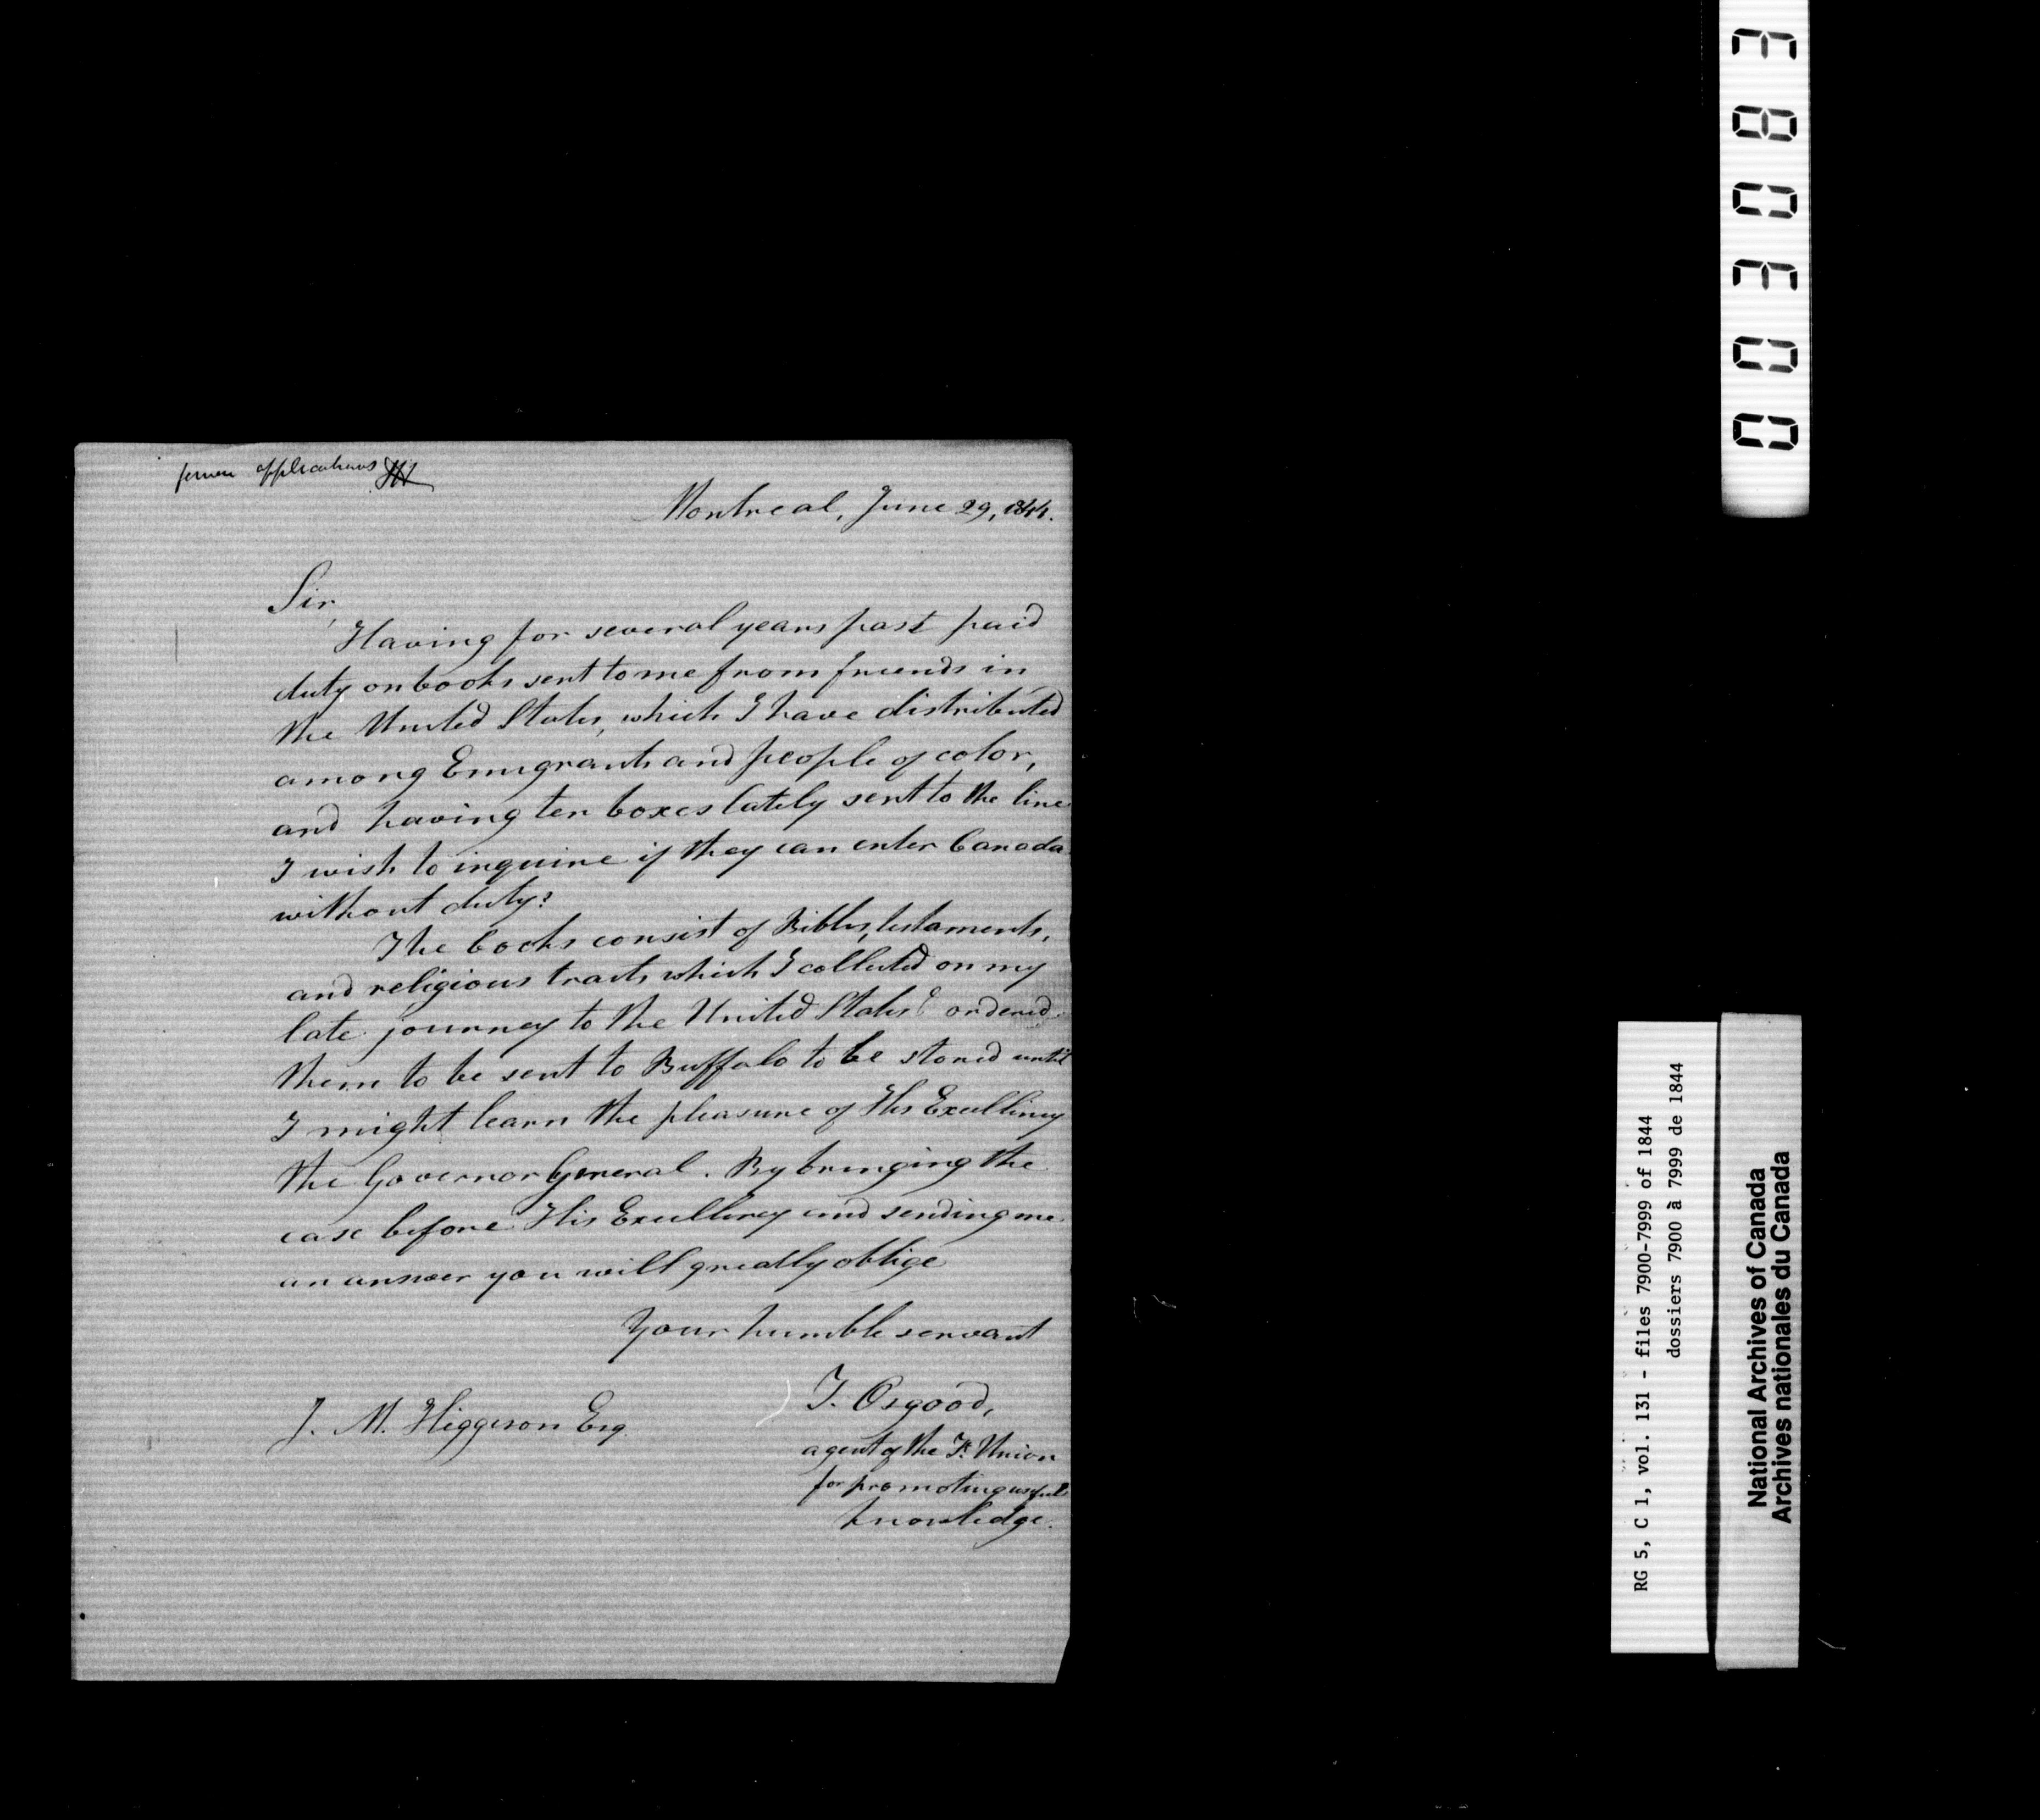 former applications
Montreal, June 29, 1844.
Sir,
Having for several years past paid
duty on books sent to me from friends in
the United States, which I have distributed
among Emigrants and people of color,
and having ten boxes lately sent to the line
I wish to inquire if they can enter Canada
without duty?
The books consist of Bibles, testaments,
and religious tracts which I collected on my
late journey to the United States & ordered
them to be sent to Buffalo to be stored until
I might learn the pleasure of His Excellency
the Governor General. By bringing the
case before His Excellency and sending me
an answer you will greatly oblige
Your humble servant
T. Osgood,
J. M. Higginson Esq.
agent of the Fr. Union
for promoting useful
knowledge.
003083
RG 5, C 1, vol. 131 - files 7900-7999 of 1844
dossiers 7900 à 7999 de 1844
National Archives of Canada
Archives nationales du Canada